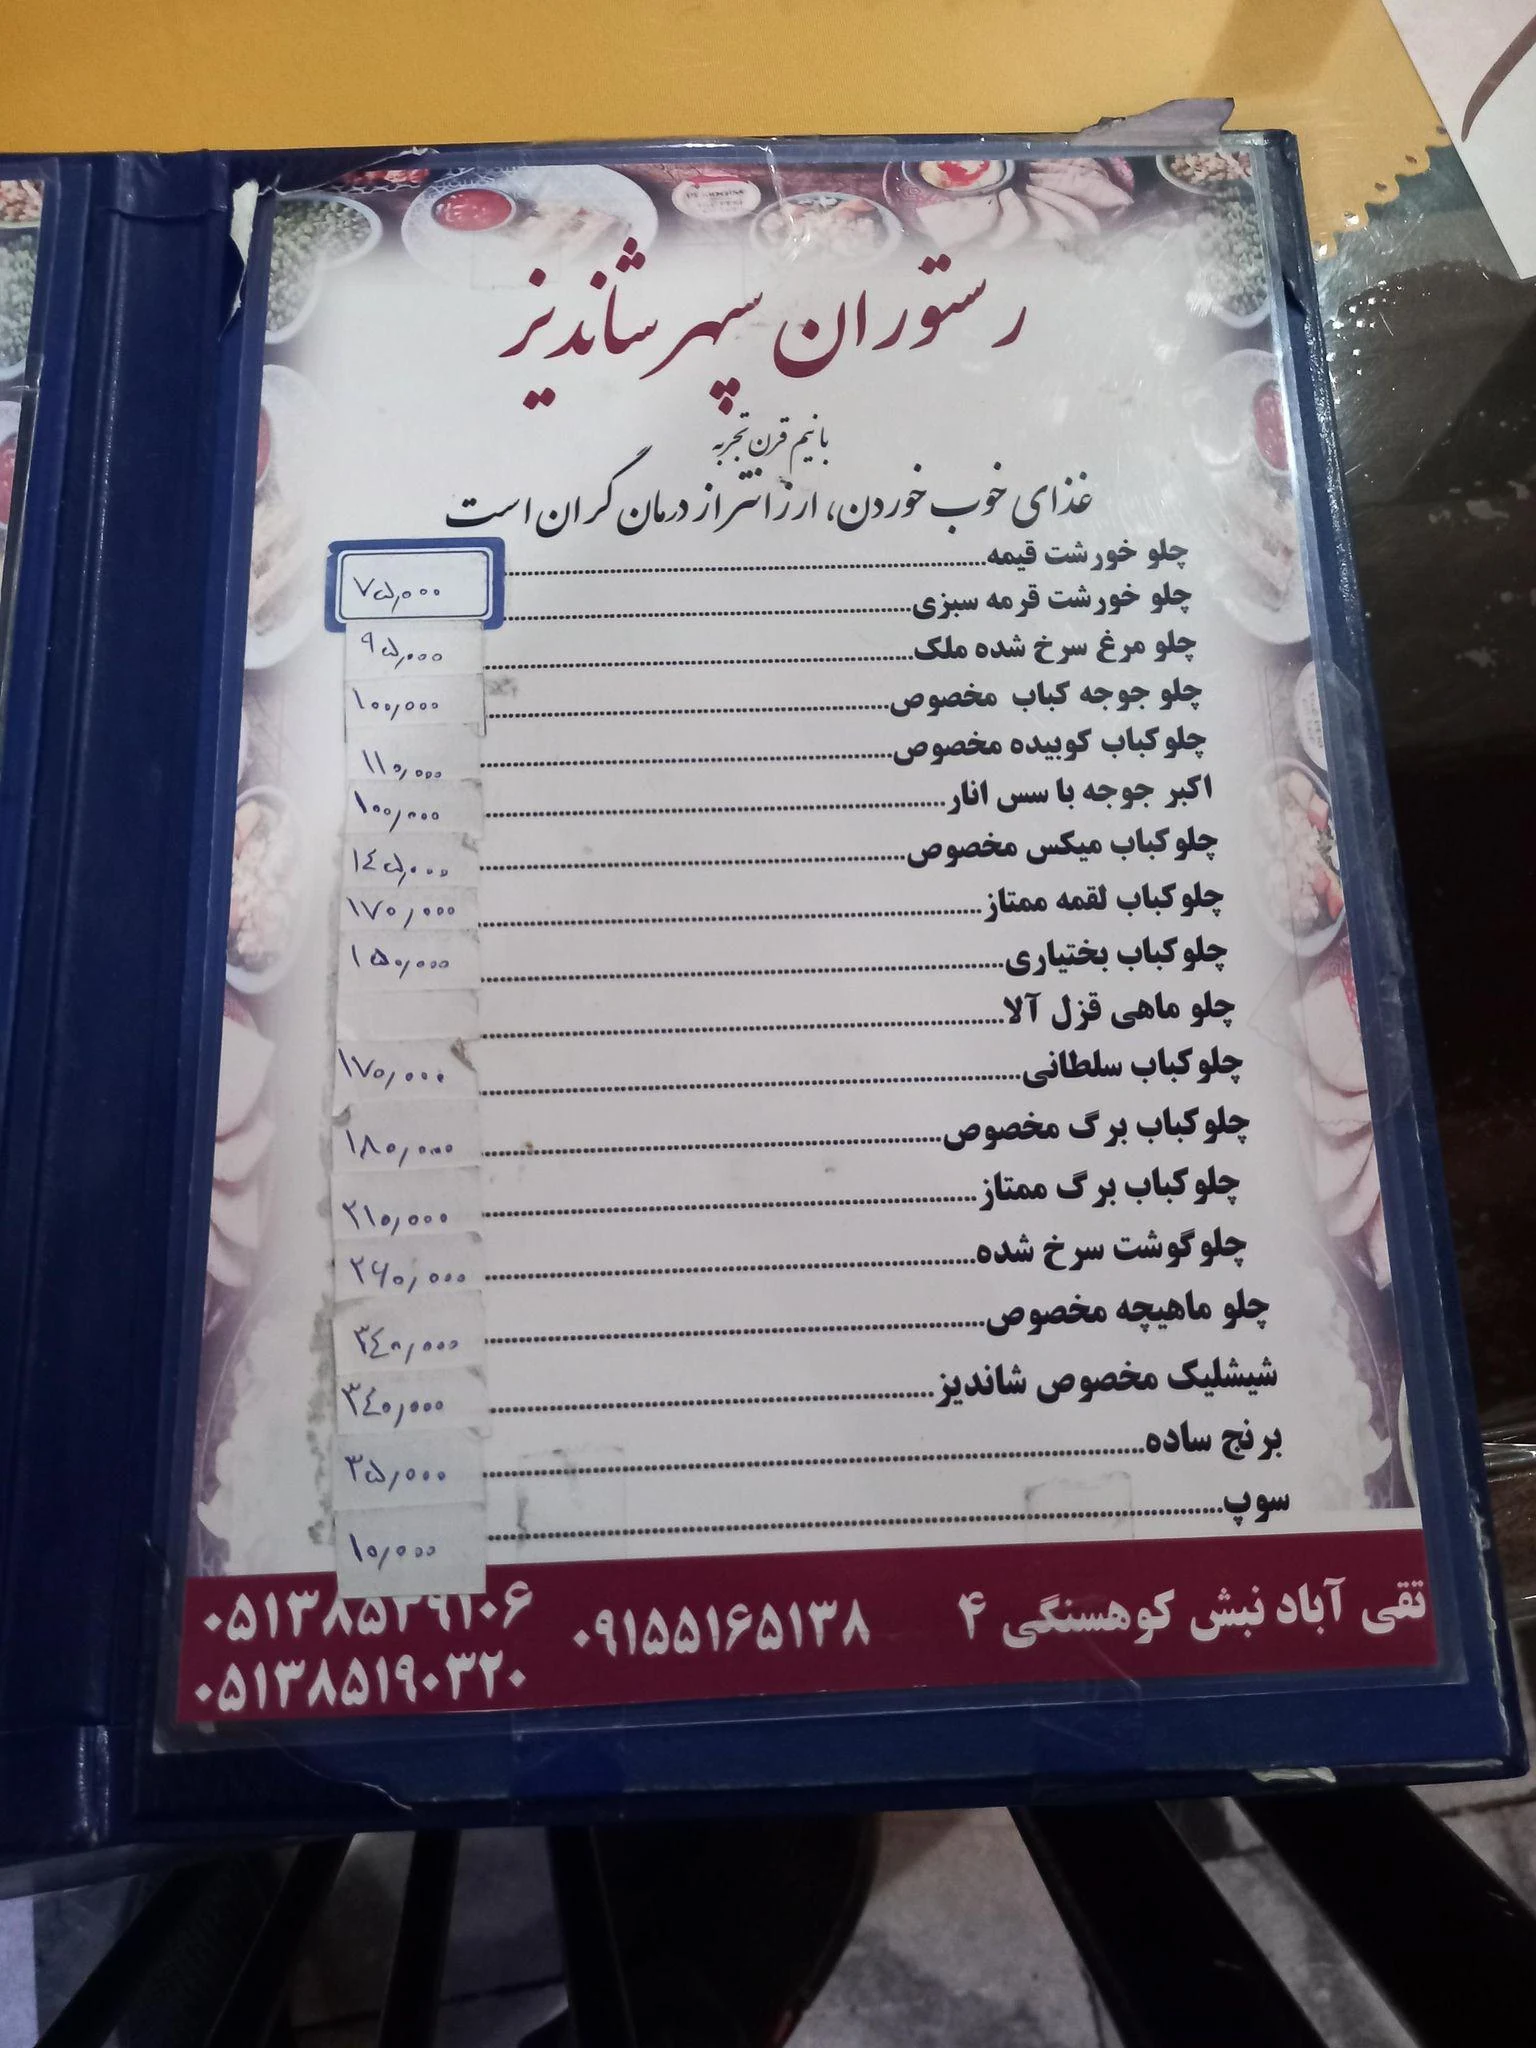 رستوران سپهر شاندیز
با نیم قرن تجربه
غذای خوب خوردن، ارزانتر از درمان گران است
چلو خورشت قیمه
چلو خورشت قرمه سبزی ۷۵,۰۰۰
چلو مرغ سرخ شده ملک ۹۵,۰۰۰
چلو جوجه کباب مخصوص ۱۰۰,۰۰۰
چلو کباب کوبیده مخصوص ۱۱۰,۰۰۰
اکبر جوجه با سس انار ۱۰۰,۰۰۰
چلو کباب میکس مخصوص ۱۴۵,۰۰۰
چلو کباب لقمه ممتاز ۱۷۰,۰۰۰
چلو کباب بختیاری ۱۵۰,۰۰۰
چلو ماهی قزل آلا
چلو کباب سلطانی ۱۷۰,۰۰۰
چلو کباب برگ مخصوص ۱۸۰,۰۰۰
چلو کباب برگ ممتاز ۲۱۰,۰۰۰
چلو گوشت سرخ شده ۲۶۰,۰۰۰
چلو ماهیچه مخصوص ۳۴۰,۰۰۰
شیشلیک مخصوص شاندیز ۳۴۰,۰۰۰
برنج ساده ۳۵,۰۰۰
سوپ ۱۰,۰۰۰
تقی آباد نبش کوهسنگی ۴ ۰۹۱۵۵۱۶۵۱۳۸ ۰۵۱۳۸۵۲۹۱۰۶
۰۵۱۳۸۵۱۹۰۳۲۰